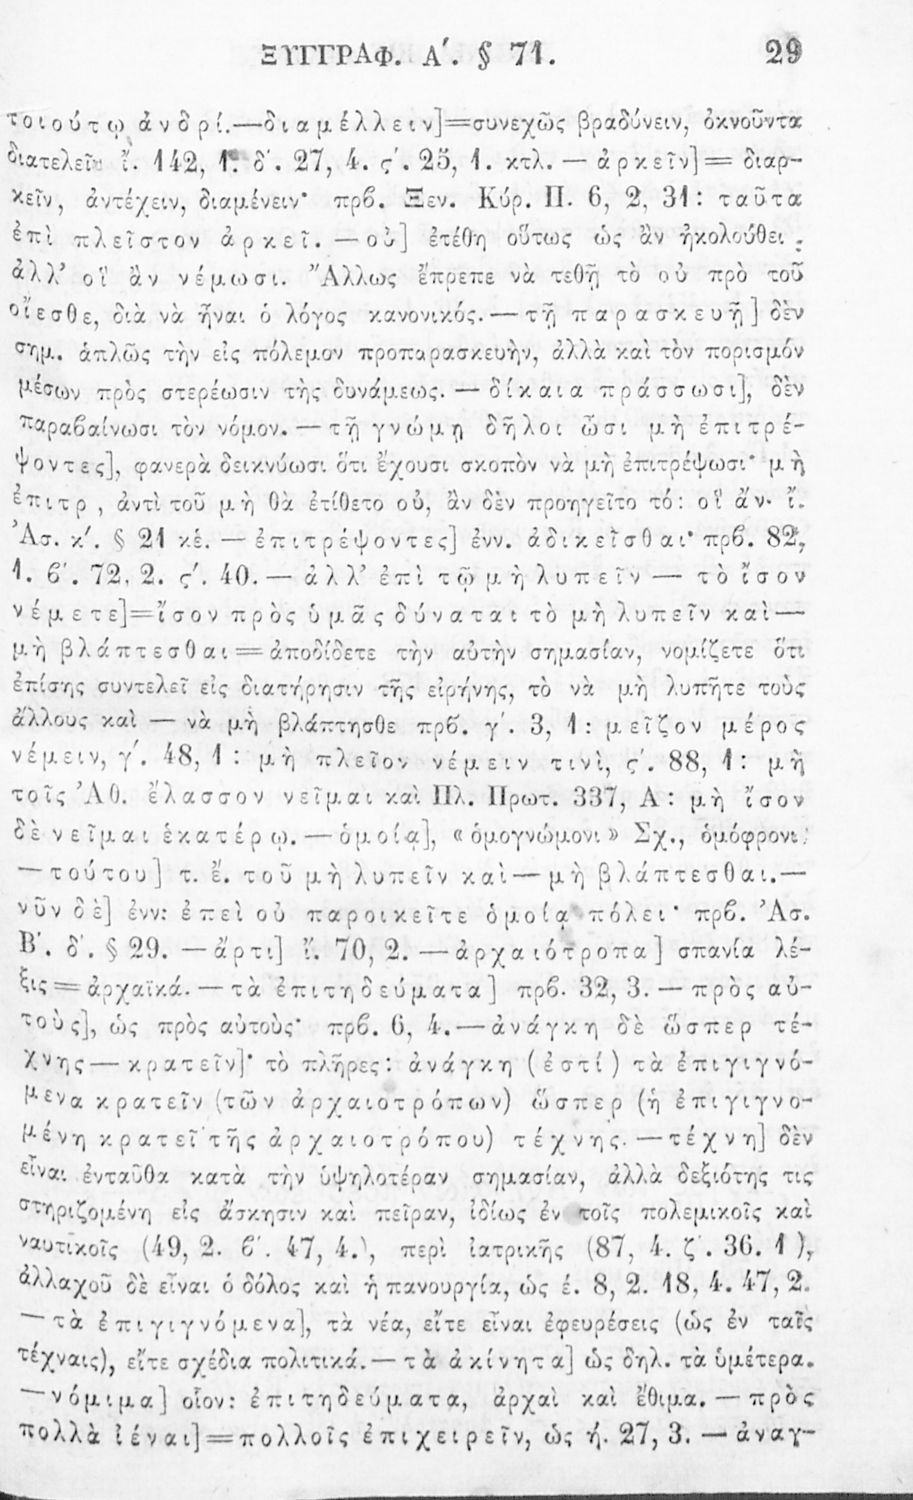 ΞΥΓΓΡΑΦ. Α΄. § 71. 29
τοιούτῳ ἀνδρί.—διαμέλλειν]=συνεχῶς βραδύνειν, ὀκνοῦντα
διατελεῖν ἴ. 142, 1. δ΄. 27, 4. ς΄. 25, 1. κτλ. — ἀρκεῖν]= διαρ-
κεῖν, ἀντέχειν, διαμένειν· πρβ. Ξεν. Κύρ. Π. 6, 2, 31: ταῦτα
ἐπὶ πλεῖστον ἀρκεῖ. — οὐ] ἐτέθη οὕτως ὡς ἂν ἠκολούθει :
ἀλλ’ οἳ ἂν νέμωσι. Ἄλλως ἔπρεπε νὰ τεθῇ τὸ οὐ πρὸ τοῦ
οἴεσθε, διὰ νὰ ἦναι ὁ λόγος κανονικός.— τῇ παρασκευῇ] δὲν
σημ. ἁπλῶς τὴν εἰς πόλεμον προπαρασκευὴν, ἀλλὰ καὶ τὸν πορισμόν
μέσων πρὸς στερέωσιν τῆς δυνάμεως. — δίκαια πράσσωσι], δὲν
παραβαίνωσι τὸν νόμον. — τῇ γνώμῃ δῆλοι ὦσι μὴ ἐπιτρέ-
ψοντες], φανερὰ δεικνύωσι ὅτι ἔχουσι σκοπὸν νὰ μὴ ἐπιτρέψωσι· μὴ
ἐπιτρ , ἀντὶ τοῦ μὴ θὰ ἐτίθετο οὐ, ἂν δὲν προηγεῖτο τό: οἳ ἄν· ἴ.
Ἀσ. κ΄. § 21 κἑ. — ἐπιτρέψοντες] ἐνν. ἀδικεῖσθαι· πρβ. 82,
1. β΄. 72, 2. ς΄. 40. — ἀλλ’ ἐπὶ τῷ μὴ λυπεῖν — τὸ ἴσον
νέμετε]=ἴσον πρὸς ὑμᾶς δύναται τὸ μὴ λυπεῖν καὶ—
μὴ βλάπτεσθαι = ἀποδίδετε τὴν αὐτὴν σημασίαν, νομίζετε ὅτι
ἐπίσης συντελεῖ εἰς διατήρησιν τῆς εἰρήνης, τὸ νὰ μὴ λυπῆτε τοὺς
ἄλλους καὶ — νὰ μὴ βλάπτησθε πρβ. γ΄. 3, 1: μεῖζον μέρος
νέμειν, γ΄. 48, 1 : μὴ πλεῖον νέμειν τινὶ, ς΄. 88, 1: μὴ
τοῖς Ἀθ. ἔλασσον νεῖμαι καὶ Πλ. Πρωτ. 337, Α: μὴ ἴσον
δὲ νεῖμαι ἑκατέρῳ. — ὁμοίᾳ], « ὁμογνώμονι » Σχ., ὁμόφρονι.
— τούτου] τ. ἔ. τοῦ μὴ λυπεῖν καὶ — μὴ βλάπτεσθαι.—
νῦν δὲ] ἐνν: ἐπεὶ οὐ παροικεῖτε ὁμοίᾳ πόλει· πρβ. Ἀσ.
Β΄. δ΄. § 29. — ἄρτι] ἴ. 70, 2. — ἀρχαιότροπα] σπανία λέ-
ξις = ἀρχαϊκά. — τὰ ἐπιτηδεύματα] πρβ. 32, 3. — πρὸς αὐ-
τοὺς], ὡς πρὸς αὐτοὺς· πρβ. 6, 4. — ἀνάγκη δὲ ὥσπερ τέ-
χνης — κρατεῖν]· τὸ πλῆρες: ἀνάγκη (ἐστί) τὰ ἐπιγιγνό-
μενα κρατεῖν (τῶν ἀρχαιοτρόπων) ὥσπερ (ἡ ἐπιγιγνο-
μένη κρατεῖ τῆς ἀρχαιοτρόπου) τέχνης. — τέχνη] δὲν
εἶναι ἐνταῦθα κατὰ τὴν ὑψηλοτέραν σημασίαν, ἀλλὰ δεξιότης τις
στηριζομένη εἰς ἄσκησιν καὶ πεῖραν, ἰδίως ἐν τοῖς πολεμικοῖς καὶ
ναυτικοῖς (49, 2. β΄. 47, 4.), περὶ ἰατρικῆς (87, 4. ζ΄. 36. 1),
ἀλλαχοῦ δὲ εἶναι ὁ δόλος καὶ ἡ πανουργία, ὡς ἑ. 8, 2. 18, 4. 47, 2.
— τὰ ἐπιγιγνόμενα], τὰ νέα, εἴτε εἶναι ἐφευρέσεις (ὡς ἐν ταῖς
τέχναις), εἴτε σχέδια πολιτικά. — τὰ ἀκίνητα] ὡς δηλ. τὰ ὑμέτερα.
— νόμιμα] οἷον: ἐπιτηδεύματα, ἀρχαὶ καὶ ἔθιμα. — πρὸς
πολλὰ ἰέναι]=πολλοῖς ἐπιχειρεῖν, ὡς ή. 27, 3. — ἀναγ-